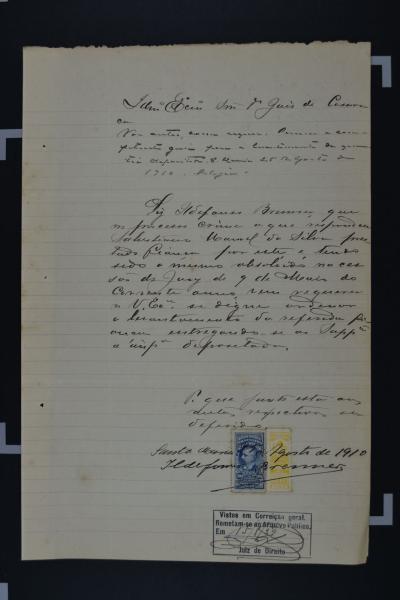 Illmo Exmo Snr Dr Juis de Comar
ca
Nos autos, como requer. Passe-se a com
petente guia para o levantamento da quan
tia depositada. S. Maria 25 de Agosto de
1910.
Diz Ildefonso Brenner, que
no processo crime a que respondeu
Manoel da Silva pres
tado fiança por este e tendo
sido o mesmo absolvido na ses
são do Jury de 9 de Maio do
corrente anno, vem requerer
a V. Exa se digne ordenar
o levantamento da referida fi
ança entregando-se ao Suppe
a impa depositada.
P. que junto esta aos
autos respectivos seja
deferido.
Santa Maria Agosto de 1910
Ildefonso Brenner
Vistos em Correição geral.
Remetam-se ao Arquivo Publico.
Em 15
Juiz de Direito